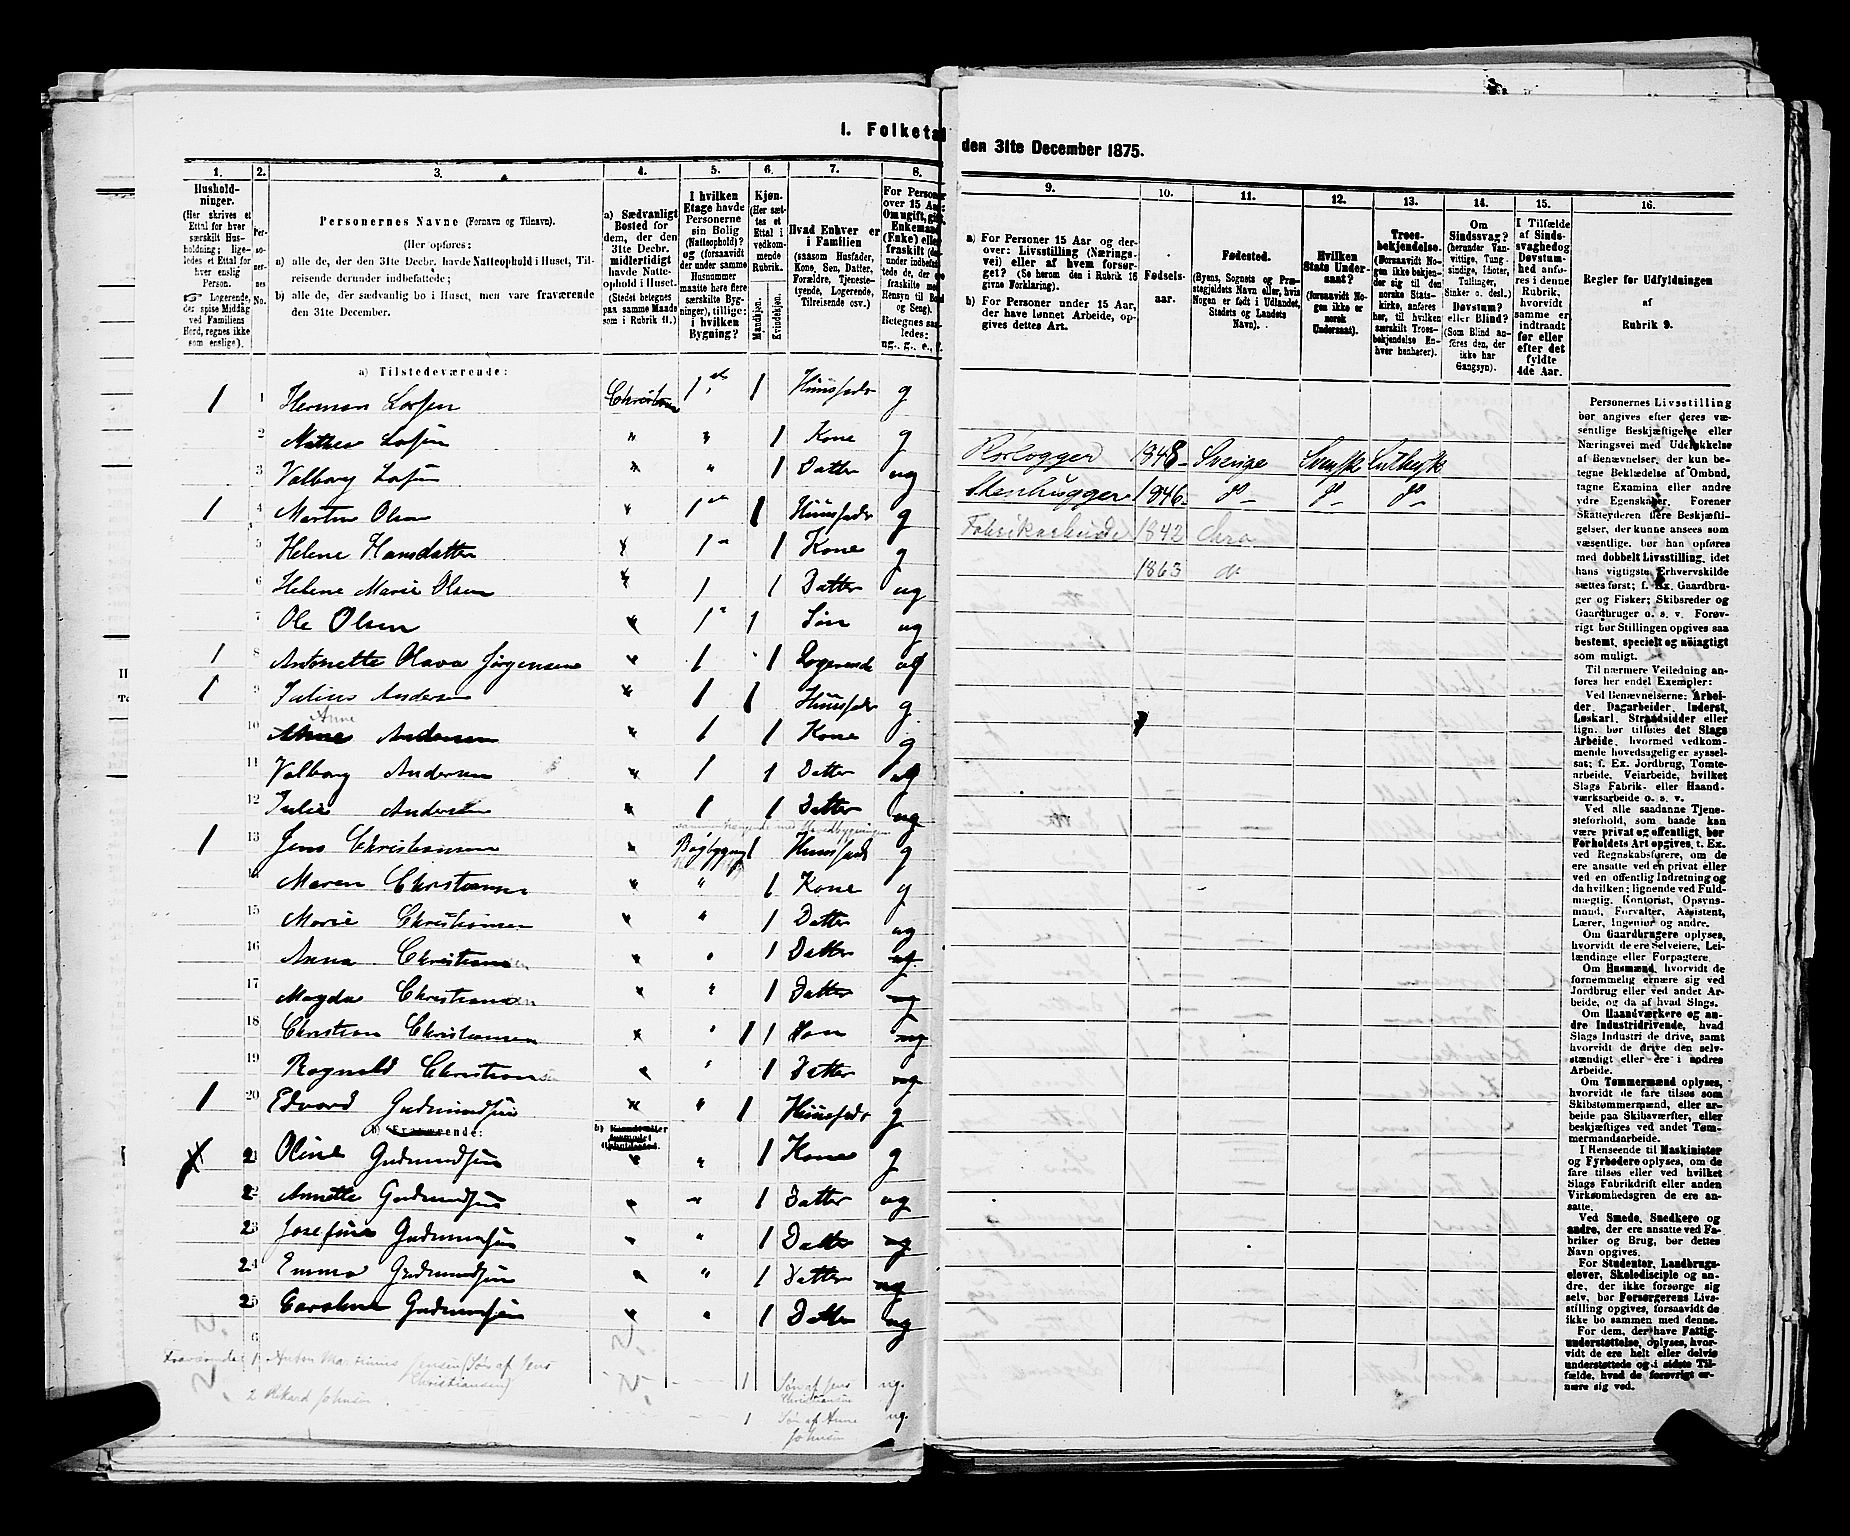 I. Folketal
1. 2. 3. 4. 5. 6. 7. 8.
Hushold-
ninger.
(Her skrives et
Ettal for hver
særskilt Hus-
holdning; lige-
ledes et Ettal for
hver enslig
Person.
☞ Logerende,
der spise Middag
ved Familiens
Bord, regnes ikke
som enslige).
Per-
so-
ner-
nes
No.
Personernes Navne (Fornavn og Tilnavn).
(Her opføres:
a) alle de, der den 31te Decbr. havde Natteophold i Huset, Til-
reisende derunder indbefattede;
b) alle de, der sædvanlig bo i Huset, men vare fraværende
den 31te December.
a) Sædvanligt
Bosted for
dem, der den
31te Decbr.
midlertidigt
havde Natte-
ophold i Huset.
(Stedet betegnes
paa samme Maade
som i Rubrik 11.)
I hvilken
Etage havde
Personerne
sin Bolig
(Natteophold)?
(forsaavidt
der under samme
Husnummer
maatte høre flere
særskilte Byg-
ninger), tillige:
i hvilken
Bygning?
Kjøn.
(Her sæt-
tes et
Ettal i
vedkom-
mende
Rubrik.
Mandkjøn.
Kvindekjøn.
Hvad Enhver er
i Familien
(saasom Husfader,
Kone, Søn, Datter,
Forældre, Tjeneste-
tyende, Logerende,
Tilreisende osv.)
For Personer
over 15 Aar
Om ugift, gift,
Enkemand
(Enke) eller
fraskilt
Betegnes saa-
ledes:
ug., g., e., f.
a) Tilstedeværende:
1 1 Herman Larsen Christiania 1 1 Huusfader g
2 Mathea Larsen " " 1 Kone g
3 Valborg Larsen " " 1 Datter ug
1 4 Martin Olsen " 1 1 Huusfader g
5 Helene Hansdatter 1 1 Kone g
6 Helene Marie Olsen 1 1 Datter ug
7 Ole Olsen 1 1 Søn ug
1 8 Antonette Olava Jørgensen 1 1 Logerende
1 9 Julius Andersen 1 1 Huusfader g
Anne
10 Andersen 1 1 Kone g
11 Valborg Andersen 1 1 Datter ug
12 Julie Andersen 1 1 Datter ug
1 13 Jens Christiansen Bagbygning 1 Huusfader g
14 Maren Christiansen " 1 Kone g
15 Marie Christiansen " 1 Datter ug
16 Anna Christiansen " 1 Datter ug
17 Magda Christiansen " 1 Datter ug
18 Christian Christiansen " 1 1 ug
19 Ragnald Christiansen " 1 Datter ug
1 20 Edvard Gudmundsen " 1 Huusfader g
b) Fraværende: b) Kjendt eller
formodet
Opholdssted.
21 Oline Gudmundsen " 1 Kone g
22 Annette Gudmundsen " 1 Datter ug
23 Josefine Gudmunsen " 1 Datter ug
24 Emma Gudmundsen " 1 Datter ug
25 Caroline Gudmunsen " 1 Datter ug
6
Fraværende 1 Anton Martinius Jensen (Søn af Jens
Christiansen) 1 Søn af Jens
Christiansen ug.
2 Rikard Johnsen 1 Søn af Anne
Johnsen ug.
den 31te December 1875.
9. 10. 11. 12. 13. 14. 15. 16.
a) For Personer 15 Aar og der-
over: Livsstilling (Nærings-
vei) eller af hvem forsør-
get? (Se herom den i Rubrik 16
givne Forklaring).
b) For Personer under 15 Aar,
der have lønnet Arbeide, op-
gives dettes Art.
Fødsels-
aar.
Fødested.
(Byens, Sognets og Præ-
stegjeldets Navn eller, hvis
Nogen er født i Udlandet,
Stedets og Landets
Navn).
Hvilken
Stats Under-
saat?
(forsaavidt No-
gen ikke er
norsk
Undersaat).
Troes-
bekjendelse.
(Forsaavidt No-
gen ikke beken-
der sig til den
norske Stats-
kirke, anføres
her, til hvilken
særskilt Troes-
bekjendelse En-
hver henhører).
Om
Sindssvag?
(herunder Van-
vittige, Tung-
sindige, Idioter,
Tullinger,
Sinker o. desl.)
Døvstum?
eller Blind?
(Som Blind an-
føres den, der
ikke har
Gangsyn).
I Tilfælde
af Sinds-
svaghed og
Døvstum-
hed anfø-
res i denne
Rubrik,
hvorvidt
samme er
indtraadt
før eller
efter det
fyldte
4de Aar.
Regler for Udfyldningen
af
Rubrik 9.
1848 Sverige Svensk Luthersk
Stenhugger 1846 do do do
Fabrikarbeider 1842 Chra
1863 do
Personernes Livsstilling
bør angives efter deres væ-
sentlige Beskjæftigelse eller
Næringsvei med Udelukkelse
af Benævnelser, der kun be-
tegne Beklædelse af Ombud,
tagne Examina eller andre
ydre Egenskaber. Forener
Skatteyderen flere Beskjæfti-
gelser, der kunne ansees som
væsentlige, bør han opføres
med dobbelt Livsstilling, idet
hans vigtigste Erhvervskilde
sættes først; f. Ex. Gaardbru-
ger og Fisker; Skibsreder og
Gaardbruger o. s. v. Forøv-
rigt bør Stillingen opgives saa
bestemt, specielt og nøiagtigt
som muligt.
Til nærmere Veiledning an-
føres her endel Exempler:
Ved Benævnelserne: Arbei-
der, Dagarbeider, Inderst,
Løskarl, Strandsidder eller
lign. bør tilføies det Slags
Arbeide, hvormed vedkom-
mende hovedsagelig er syssel-
sat; f. Ex. Jordbrug, Tomte-
arbeide, Veiarbeide, hvilket
Slags Fabrik- eller Haand-
værksarbeide o. s. v.
Ved alle saadanne Tjene-
steforhold, som baade kan
være privat og offentligt, bør
Forholdets Art opgives, f. Ex.
ved Regnskabsførere, om de
ere ansatte ved en privat eller
ved en offentlig Indretning og
da hvilken; lignende ved Fuld-
mægtig, Kontorist, Opsyns-
mand, Forvalter, Assistent,
Lærer, Ingeniør og andre.
Om Gaardbrugere oplyses,
hvorvidt de ere Selveiere, Lei-
lændinge eller Forpagtere.
Om Husmænd, hvorvidt de
fornemmelig ernære sig ved
Jordbrug eller ved andet Ar-
beide, og da af hvad Slags.
Om Haandværkere og an-
dre Industridrivende, hvad
Slags Industri de drive, samt
hvorvidt de drive den selv-
stændigt eller ere i andres
Arbeide.
Om Tømmermænd oplyses,
hvorvidt de fare tilsøs som
Skibstømmermænd, eller ar-
beide paa Skibsværfter, eller
beskjæftiges ved andet Tøm-
mermandsarbeide.
I Henseende til Maskinister
og Fyrbødere oplyses, om de
fare tilsøs eller ved hvilket
Slags Fabrikdrift eller anden
Virksomhedsgren de ere an-
satte.
Ved Smede, Snedkere og
andre, der ere ansatte ved Fa-
briker og Brug, bør dettes
Navn opgives.
For Studenter, Landbrugs-
elever, Skoledisciple og an-
dre, der ikke forsørge sig
selv, bør Forsørgerens Livs-
stilling opgives, forsaavidt de
ikke bo sammen med denne.
For dem, der have Fattig-
understøttelse, oplyses, hvor-
vidt de ere helt eller delvis
understøttede og i sidste Til-
fælde, hvad de forøvrigt er-
nære sig ved.